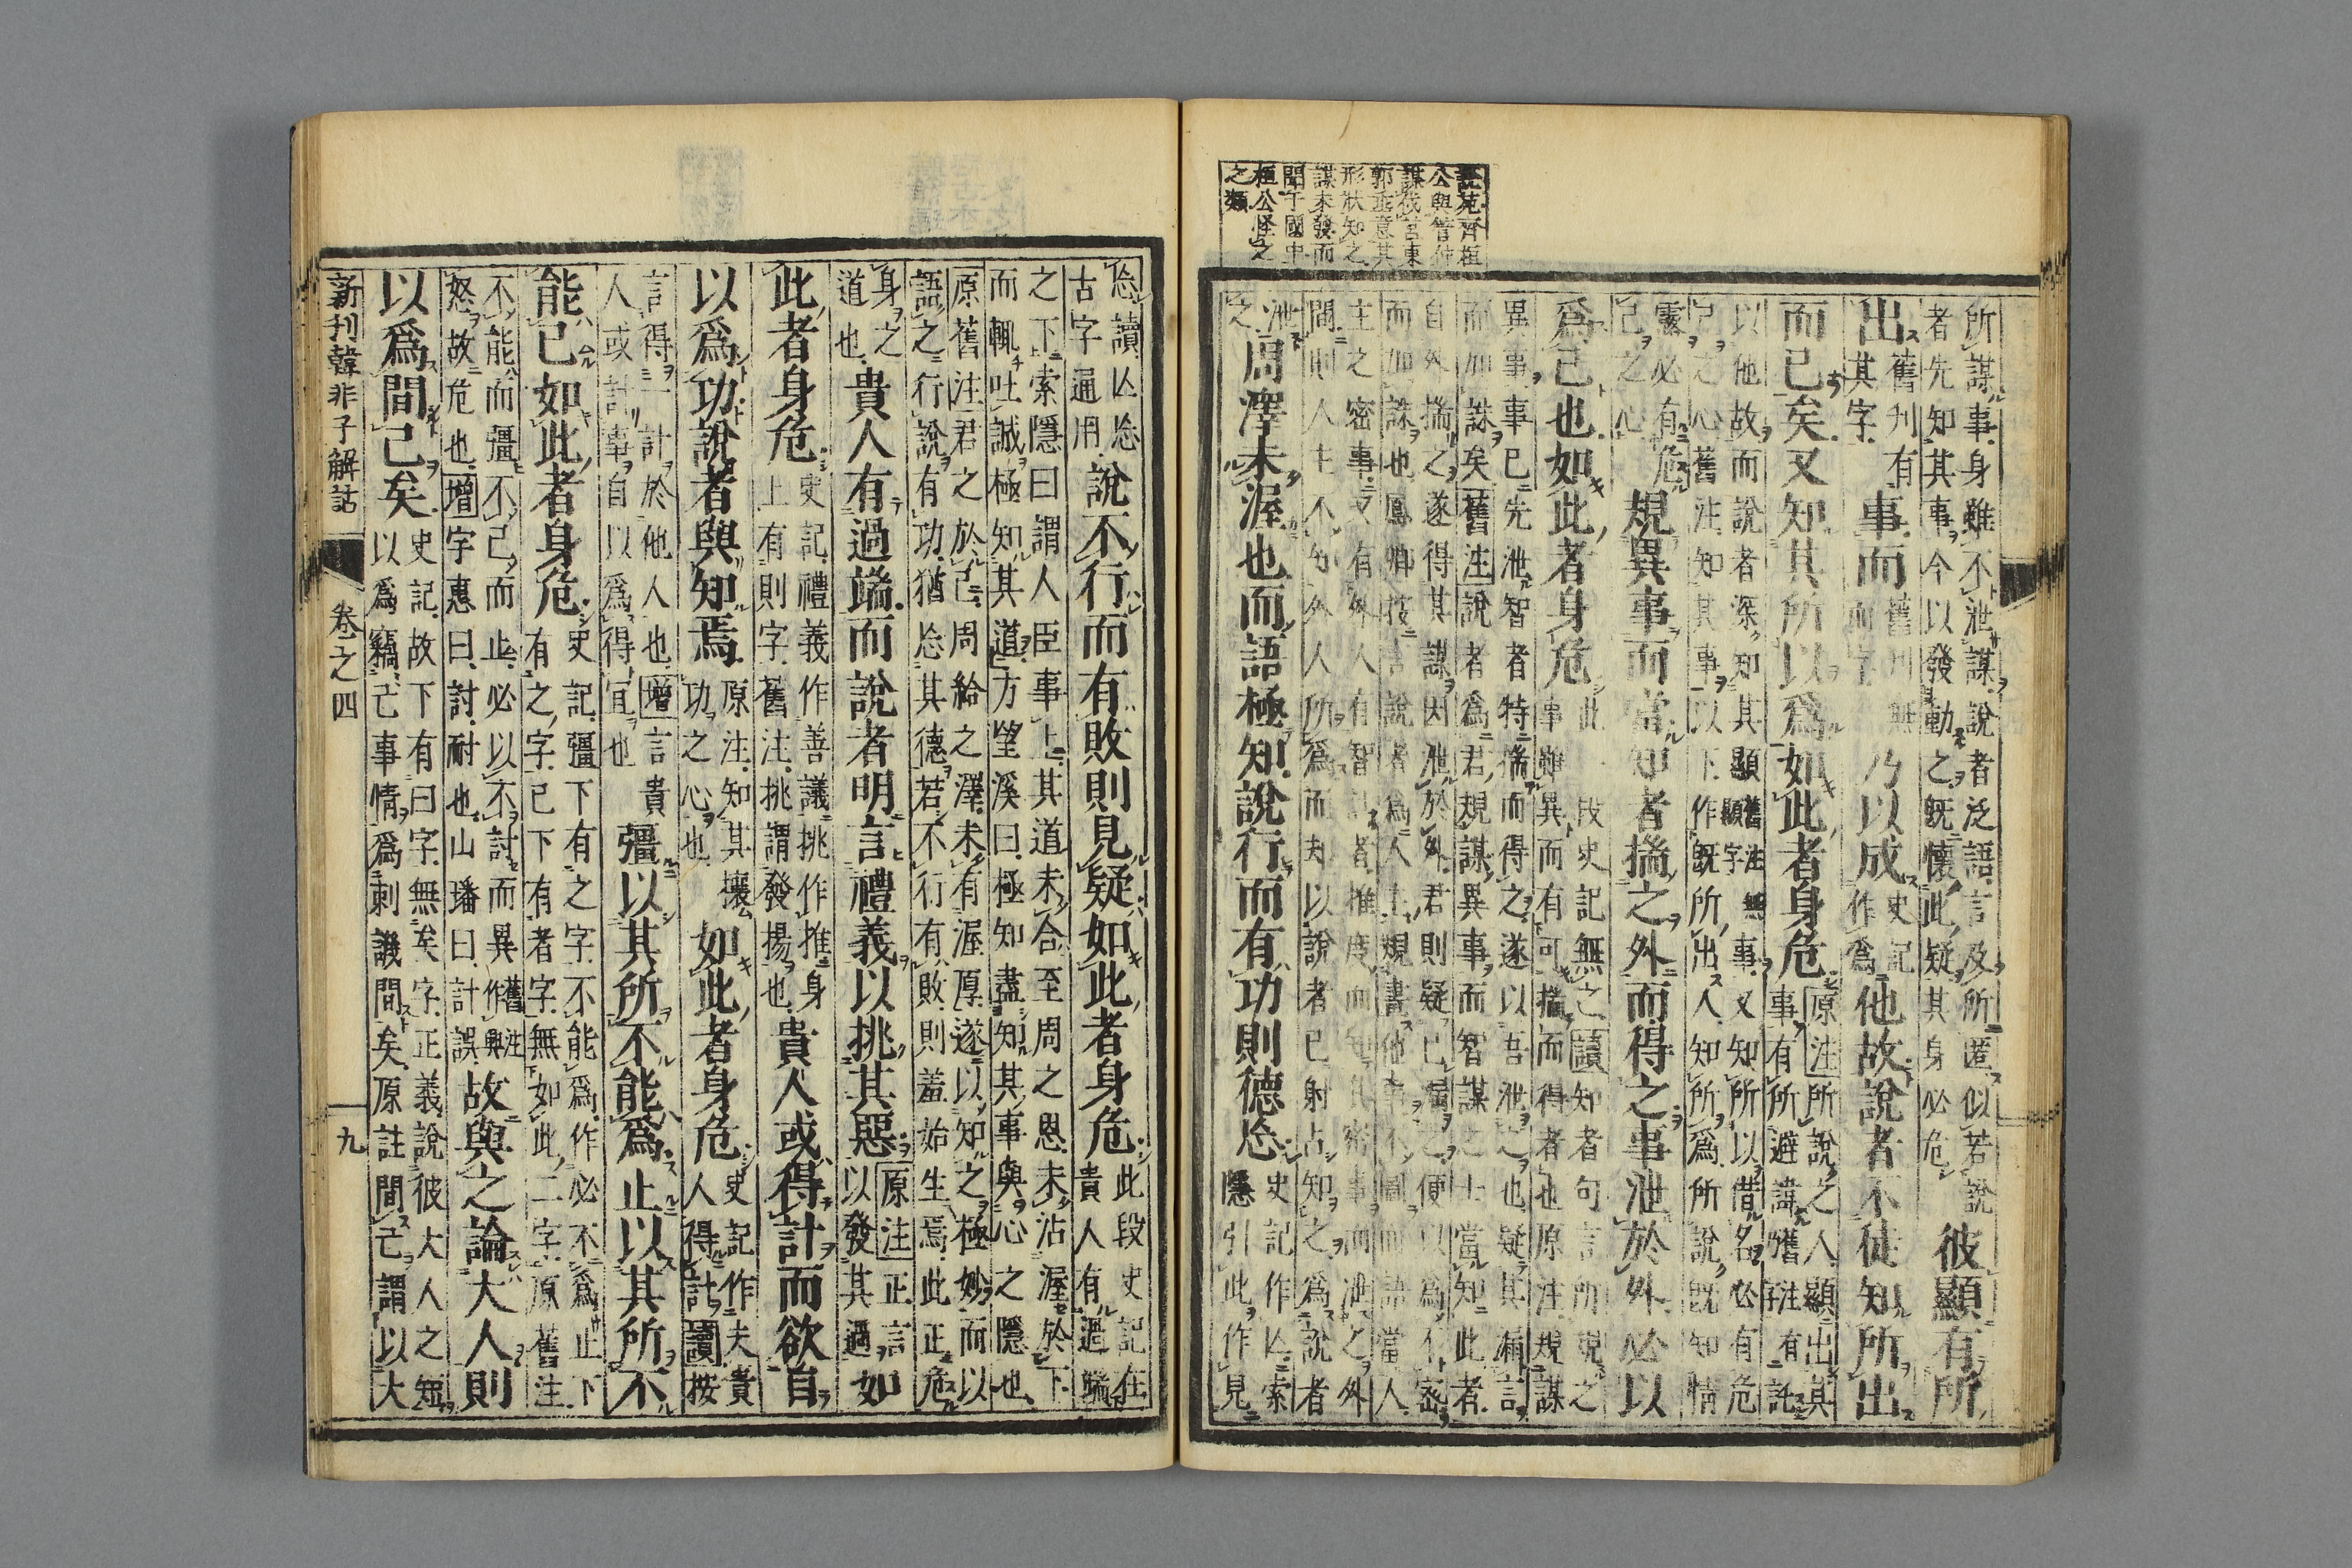 説苑齊桓
公與管仲
謀伐莒東
郭垂意其
形狀知之
謀未發而
聞于國中
桓公怪之
之類
所謀事身雖不泄謀說者泛語言及所匿似若說
者先知其事今以發動之既懷此疑其身必危
彼顯有所
出
舊刋有
其字
事而
舊刋無
而字
乃以成
史記
作爲
他故說者不徒知所出
而已矣又知其所以爲如此者身危
原注所說之人顯出其
事有所避諱舊注有託
字
以他故而說者深知其顯
舊注無
顯字
事又知所以借名必有危
己之心舊注知其事以下作既所出人知所爲所說既知情
露必有危
己之心
規異事而當知者揣之外而得之事泄於外必以
爲己也如此者身危
此一段史記無之讀知者句言所規之
事雖異而有可揣而得者也原注規謀
異事事已先泄智者特揣而得之遂以吾泄之也疑其漏言
而加誅矣舊注說者爲君規謀異事而智謀之士當知此者
自外揣之遂得其謀因泄於外君則疑己漏之便以爲不密
而加誅也鳳卿按言說者爲人主規畫他事不圖而語當人
主之密事又有外人有智計者推度而知其密事而泄之外
間則人主不知外人所爲而夫以說者已射占知之爲說者
泄
之
周澤未渥也而語極知說行而有功則德忘
史記作亾索
隱引此作見
忘讀亾忘
古字通用
說不行而有敗則見疑如此者身危
此段史記在
貴人有過端
之下索隱曰謂人臣事上其道未合至周之恩未沾渥於下
而輒吐誠極知其道方望溪曰極知盡知其事與心之隱也
原舊注君之於己周給之澤未有渥厚遂以知之極妙而以
語之行說有功猶忘其德若不行有敗則羞始生焉此正危
身之
道也
貴人有過端而說者明言禮義以挑其惡
原注正言
以發其過
如
此者身危
史記禮義作善議挑作推身
上有則字舊注挑謂發揚也
貴人或得計而欲自
以爲功說者與知焉
原注知其壞
功之心也
如此者身危
史記作夫貴
人得計讀按
言得一計於他人也增言貴
人或計事自以爲得宜也
彊以其所不能爲止以其所不
能已如此者身危
史記彊下有之字不能爲作必不爲止下
有之字已下有者字無如此二字原舊注
不能而彊不已而止必以不討而異
舊注
作與
怒故危也增字惠曰討耐也山璠曰計誤
故與之論大人則
以爲間己矣
史記故下有曰字無矣字正義說彼大人之短
以爲竊己事情爲刺譏間矣原註間己謂以大
新刊韓非子解詁
卷之四
九